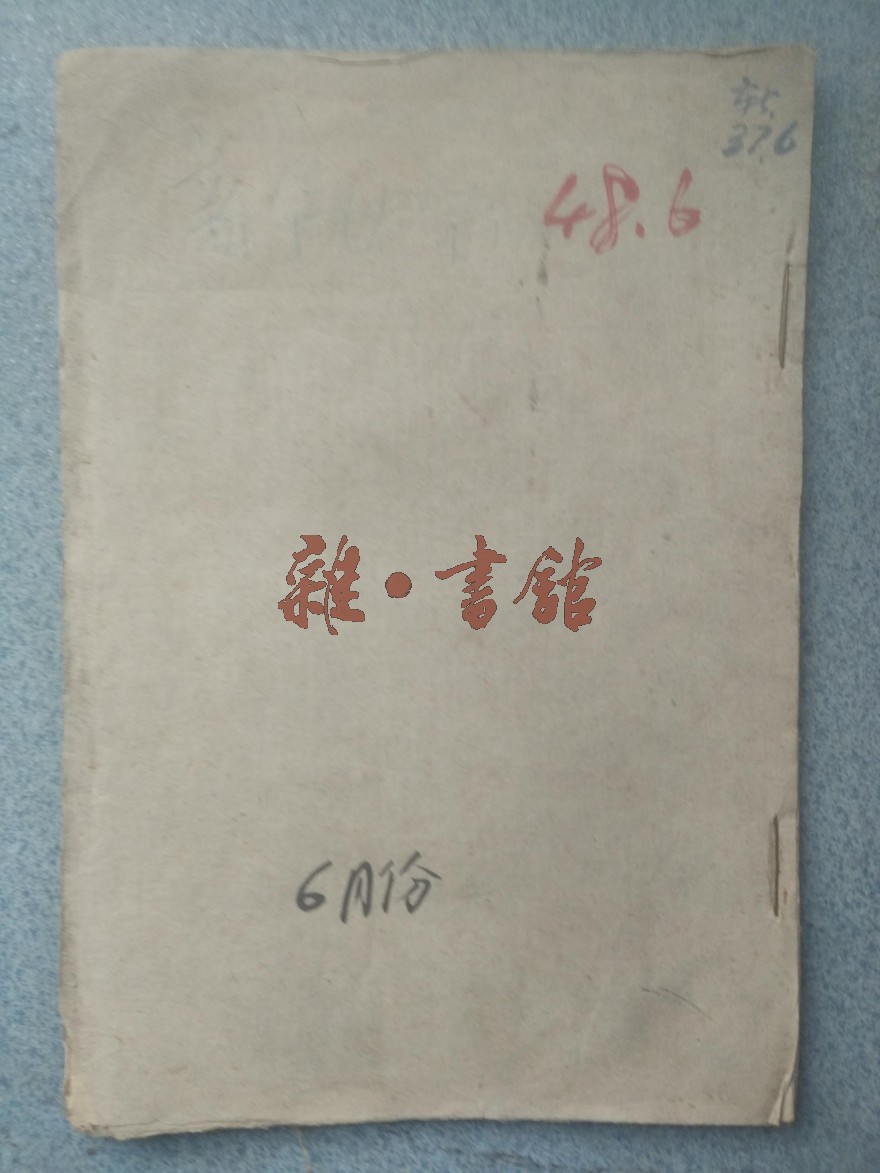 37.6
48.6
雜·書館
6月份